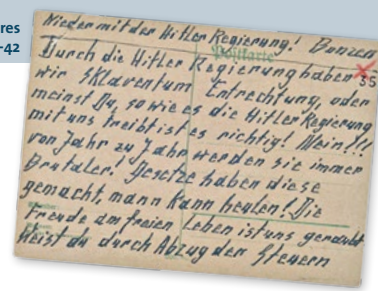 res
-42
Nieder mit der Hitler Regierung! Bonzen
Postkarte
35
Durch die Hitler Regierung haben
wir Sklaventum Entrechtung, oder
meinst Du, so wie es die Hitler Regierung
mit uns treibt ist es richtig! Nein!!!
von Jahr zu Jahr werden sie immer
Brutaler! Gesetze haben diese
gemacht, mann kann heulen! Die
Freude am freien Leben ist uns geraubt
heist du durch Abzug der Steuern